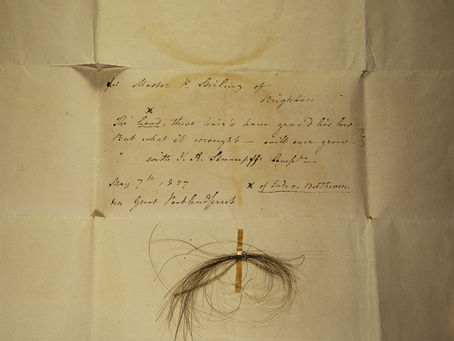 Master Stirling of
Brighton
x
The head, these hair's have grac'd low
But what it wrought – will ever grow.
with J. A. Stumpff
May 7th 1827 x of Beethoven.
44 Great Portland Street